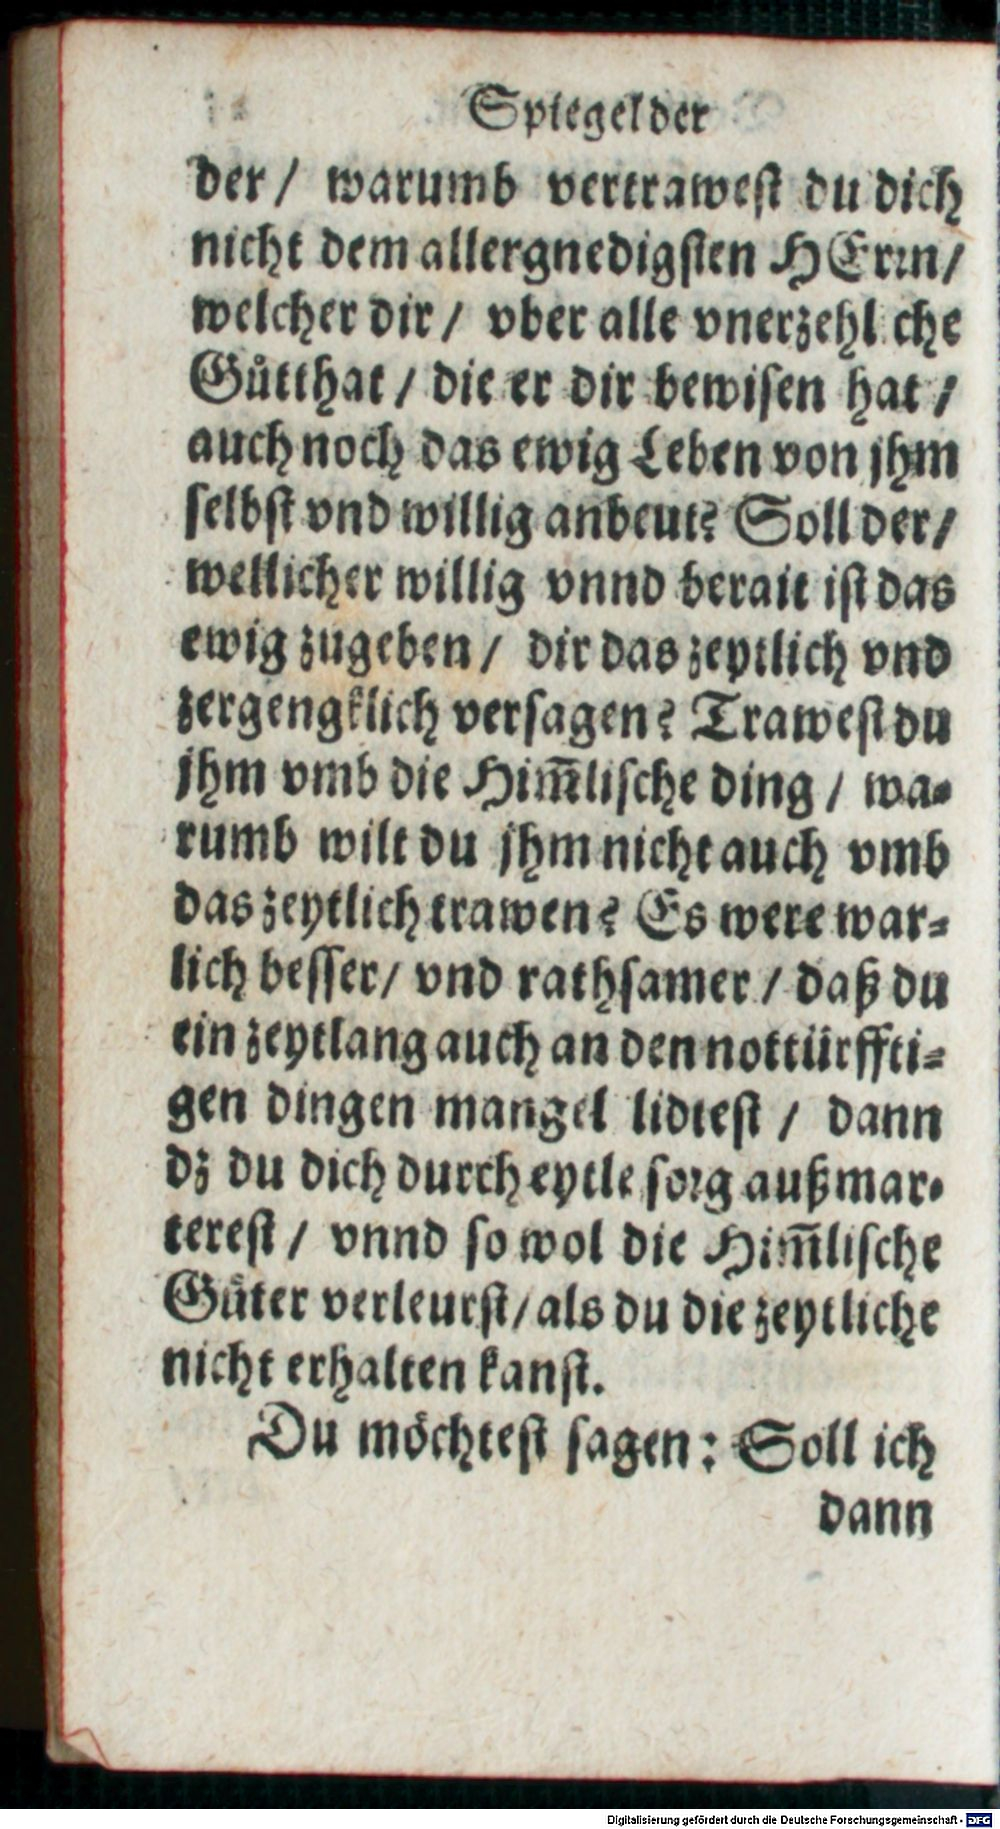 Spiegel der
der / warumb vertrawest du dich
nicht dem allergnedigsten HErrn/
welcher dir / vber alle vnerzehl che
Gůtthat / die er dir bewisen hat /
auch noch das ewig Leben von jhm
selbst vnd willig anbeut? Soll der/
wellicher willig vnnd berait ist das
ewig zugeben / dir das zeytlich vnd
zergengklich versagen? Trawest du
jhm vmb die Him̄lische ding / wa-
rumb wilt du jhm nicht auch vmb
das zeytlich trawen? Es were war-
lich besser/ vnd rathsamer / daß du
ein zeytlang auch an den nottürffti-
gen dingen mangel lidtest / dann
dz du dich durch eytle sorg außmar-
terest / vnnd so wol die Him̄lische
Gůter verleurst/ als du die zeytliche
nicht erhalten kanst.
Du möchtest sagen: Soll ich
dann
Digitalisierung gefördert durch die Deutsche Forschungsgemeinschaft - DFG